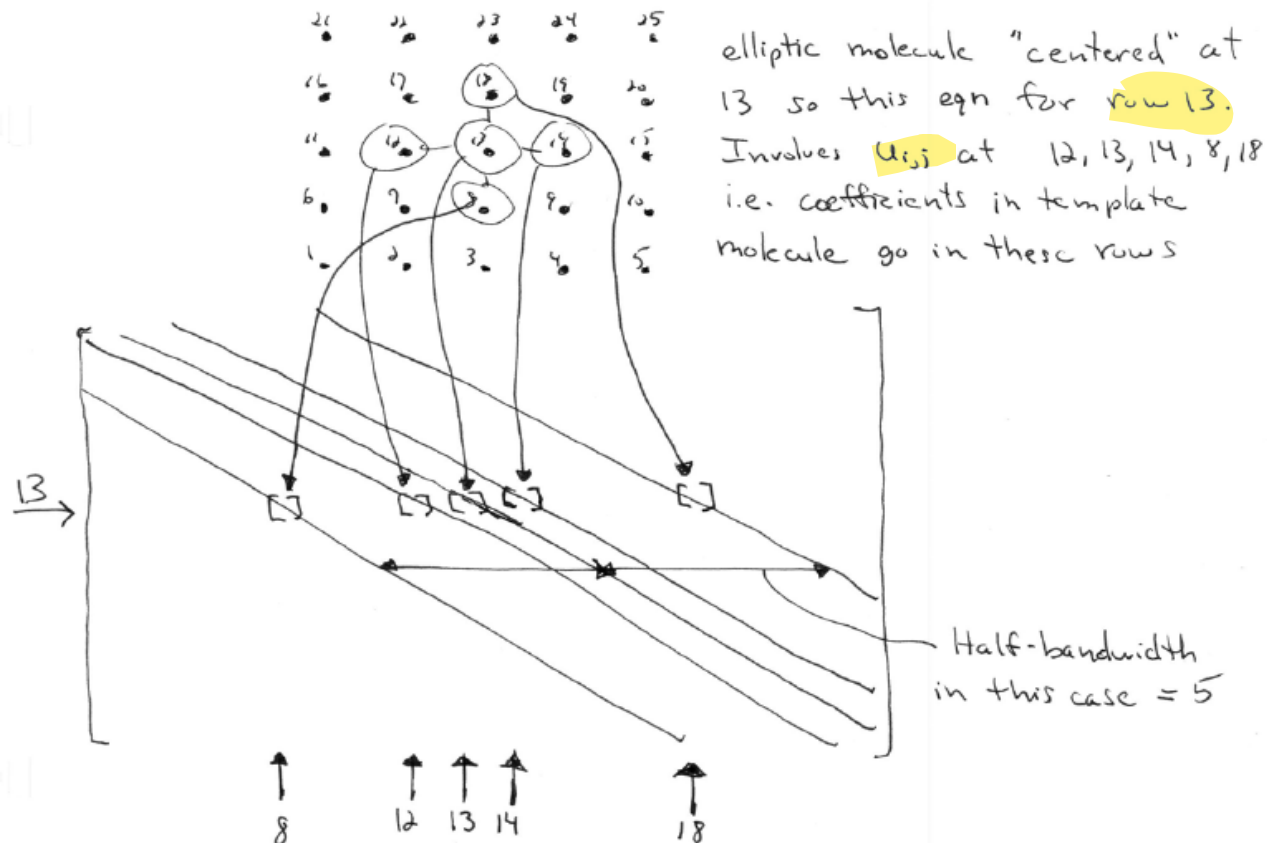 21 22 23 24 25
16 17 18 19 20
11 12 13 14 15
6 7 8 9 10
1 2 3 4 5
elliptic molecule "centered" at
13 so this eqn for row 13.
Involves Ui,j at 12, 13, 14, 8, 18
i.e. coefficients in template
molecule go in these rows
13
Half-bandwidth
in this case = 5
8 12 13 14 18